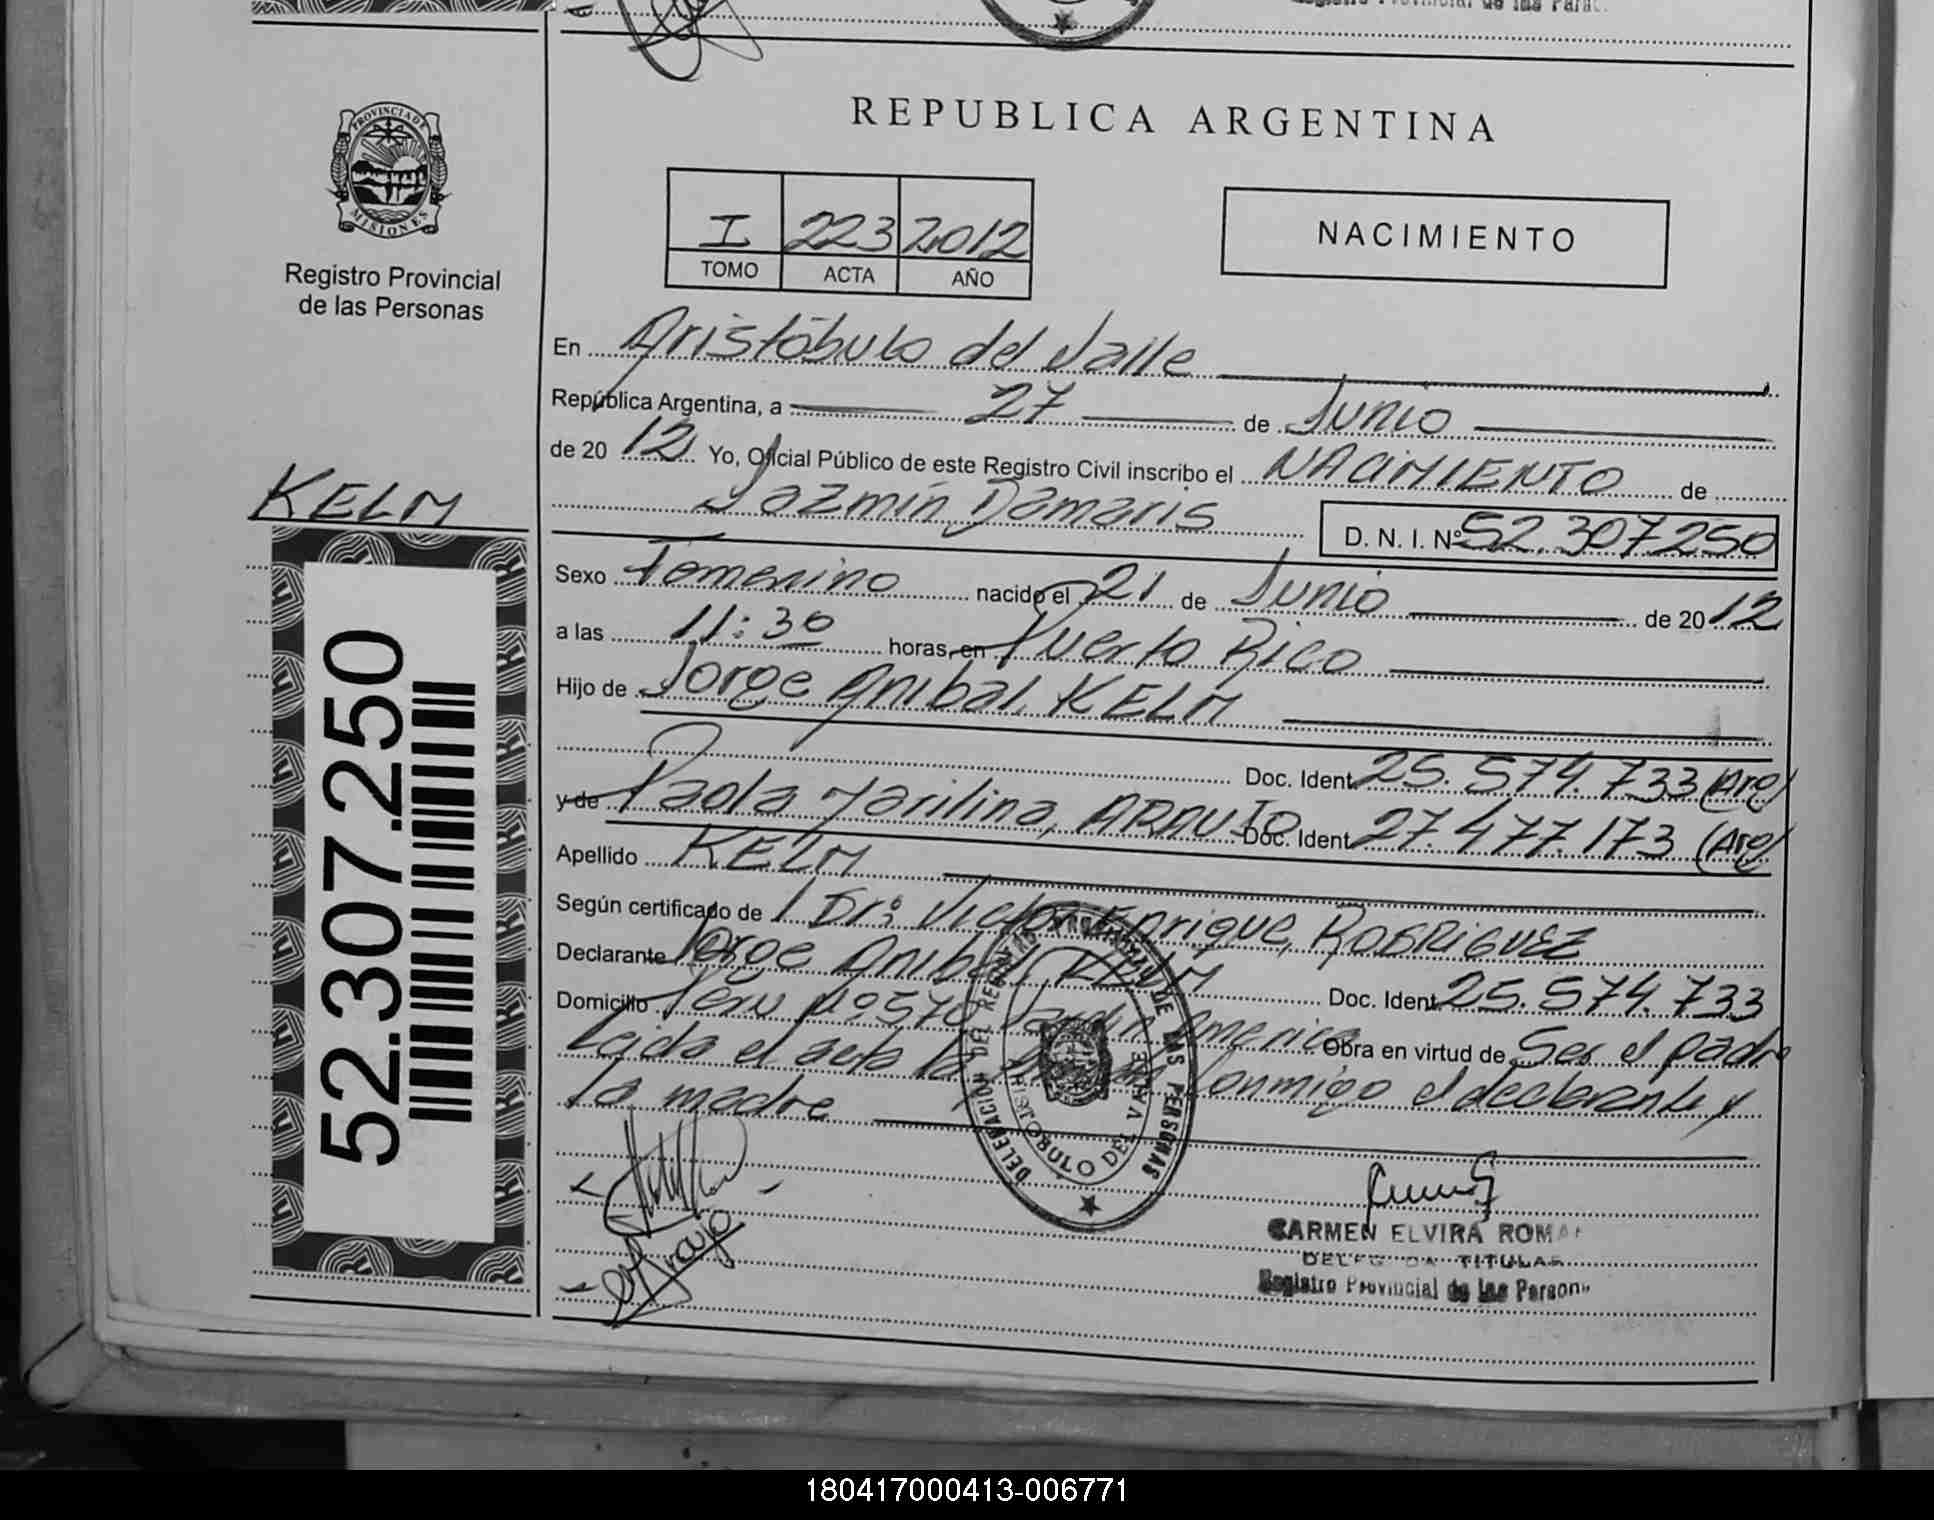 PROVINCIA DE
MISIONES
Registro Provincial
de las Personas
KELM
52.307.250
REPUBLICA ARGENTINA
I 223 2012
TOMO ACTA AÑO
NACIMIENTO
En Aristóbulo del Valle
República Argentina, a 27 de Junio
de 20 12 Yo, Oficial Público de este Registro Civil inscribo el NACIMIENTO de
Jazmín Damaris D. N. I. Nº 52.307250
Sexo Femenino nacido el 21 de Junio de 20 12
a las 11:30 horas, en Puerto Rico
Hijo de Jorge Anibal, KELM
Doc. Ident. 25.574.733 (Arg)
y de Paola Marilina, ARAUJO Doc. Ident. 27.477.173 (Arg)
Apellido KELM
Según certificado de Dr: Victor Enrique, RODRIGUEZ
Declarante Jorge Anibal, KELM Doc. Ident. 25.574.733
Domicilio Peru Nº 570 Jardin America Obra en virtud de Ser el padre
Leida el acta la conmigo el declarante y
la madre
DELEGACION DEL REGISTRO PROVINCIAL DE LAS PERSONAS
ARISTOBULO DEL VALLE
Araujo
CARMEN ELVIRA ROMA
TITULAR
Registro Provincial de las Person
180417000413-006771